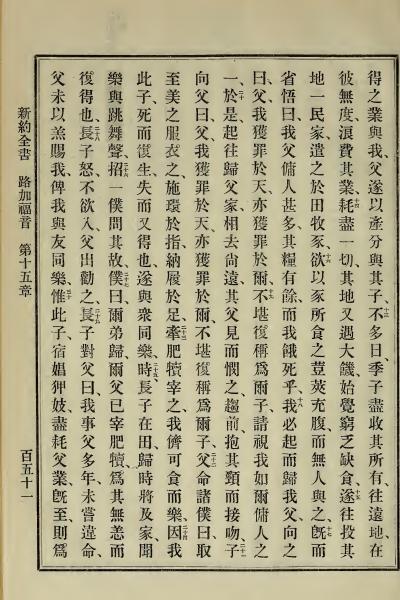 得之業與我、父遂以產分與其子、十三不多日、季子盡收其所有、往遠地、在
彼無度、浪費其業、十四耗盡一切、其地又遇大饑、始覺窮乏缺食、十五遂往投其
地一民家、遣之於田牧豕、十六欲以豕所食之荳莢充腹、而無人與之、十七旣而
省悟曰、我父傭人甚多、其糧有餘、而我餓死乎、十八我必起而歸我父、向之
曰、父、我獲罪於天、亦獲罪於爾、十九不堪復稱爲爾子、請視我如爾傭人之
一、二十於是起往歸父家、相去尙遠、其父見而憫之、趨前抱其頸而接吻、二十一子
向父曰、父、我獲罪於天、亦獲罪於爾、不堪復稱爲爾子、二十二父命諸僕曰、取
至美之服衣之、施環於指、納履於足、二十三牽肥犢宰之、我儕可食而樂、二十四因我
此子死而復生、失而又得也、遂與衆同樂、二十五時長子在田、歸時將及家、聞
樂與跳舞聲、二十六招一僕問其故、二十七僕曰、爾弟歸、爾父已宰肥犢、爲其無恙而
復得也、二十八長子怒、不欲入、父出勸之、二十九長子對父曰、我事父多年、未嘗違命、
父未以羔賜我、俾我與友同樂、三十惟此子、宿娼狎妓、盡耗父業、旣至、則爲
新約全書　路加福音　第十五章　百五十一